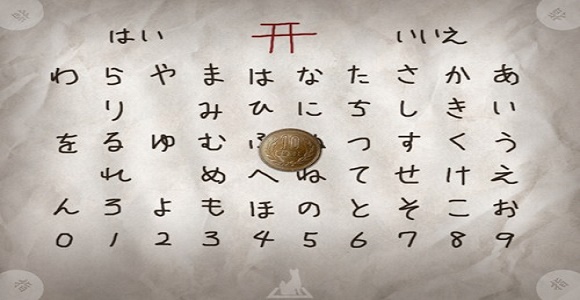 はい いいえ
わ ら や ま は な た さ か あ
り み ひ に ち し き い
を る ゆ む つ す く う
れ め へ ね て せ け え
ん ろ よ も ほ の と そ こ お
0 1 2 3 4 5 6 7 8 9
10